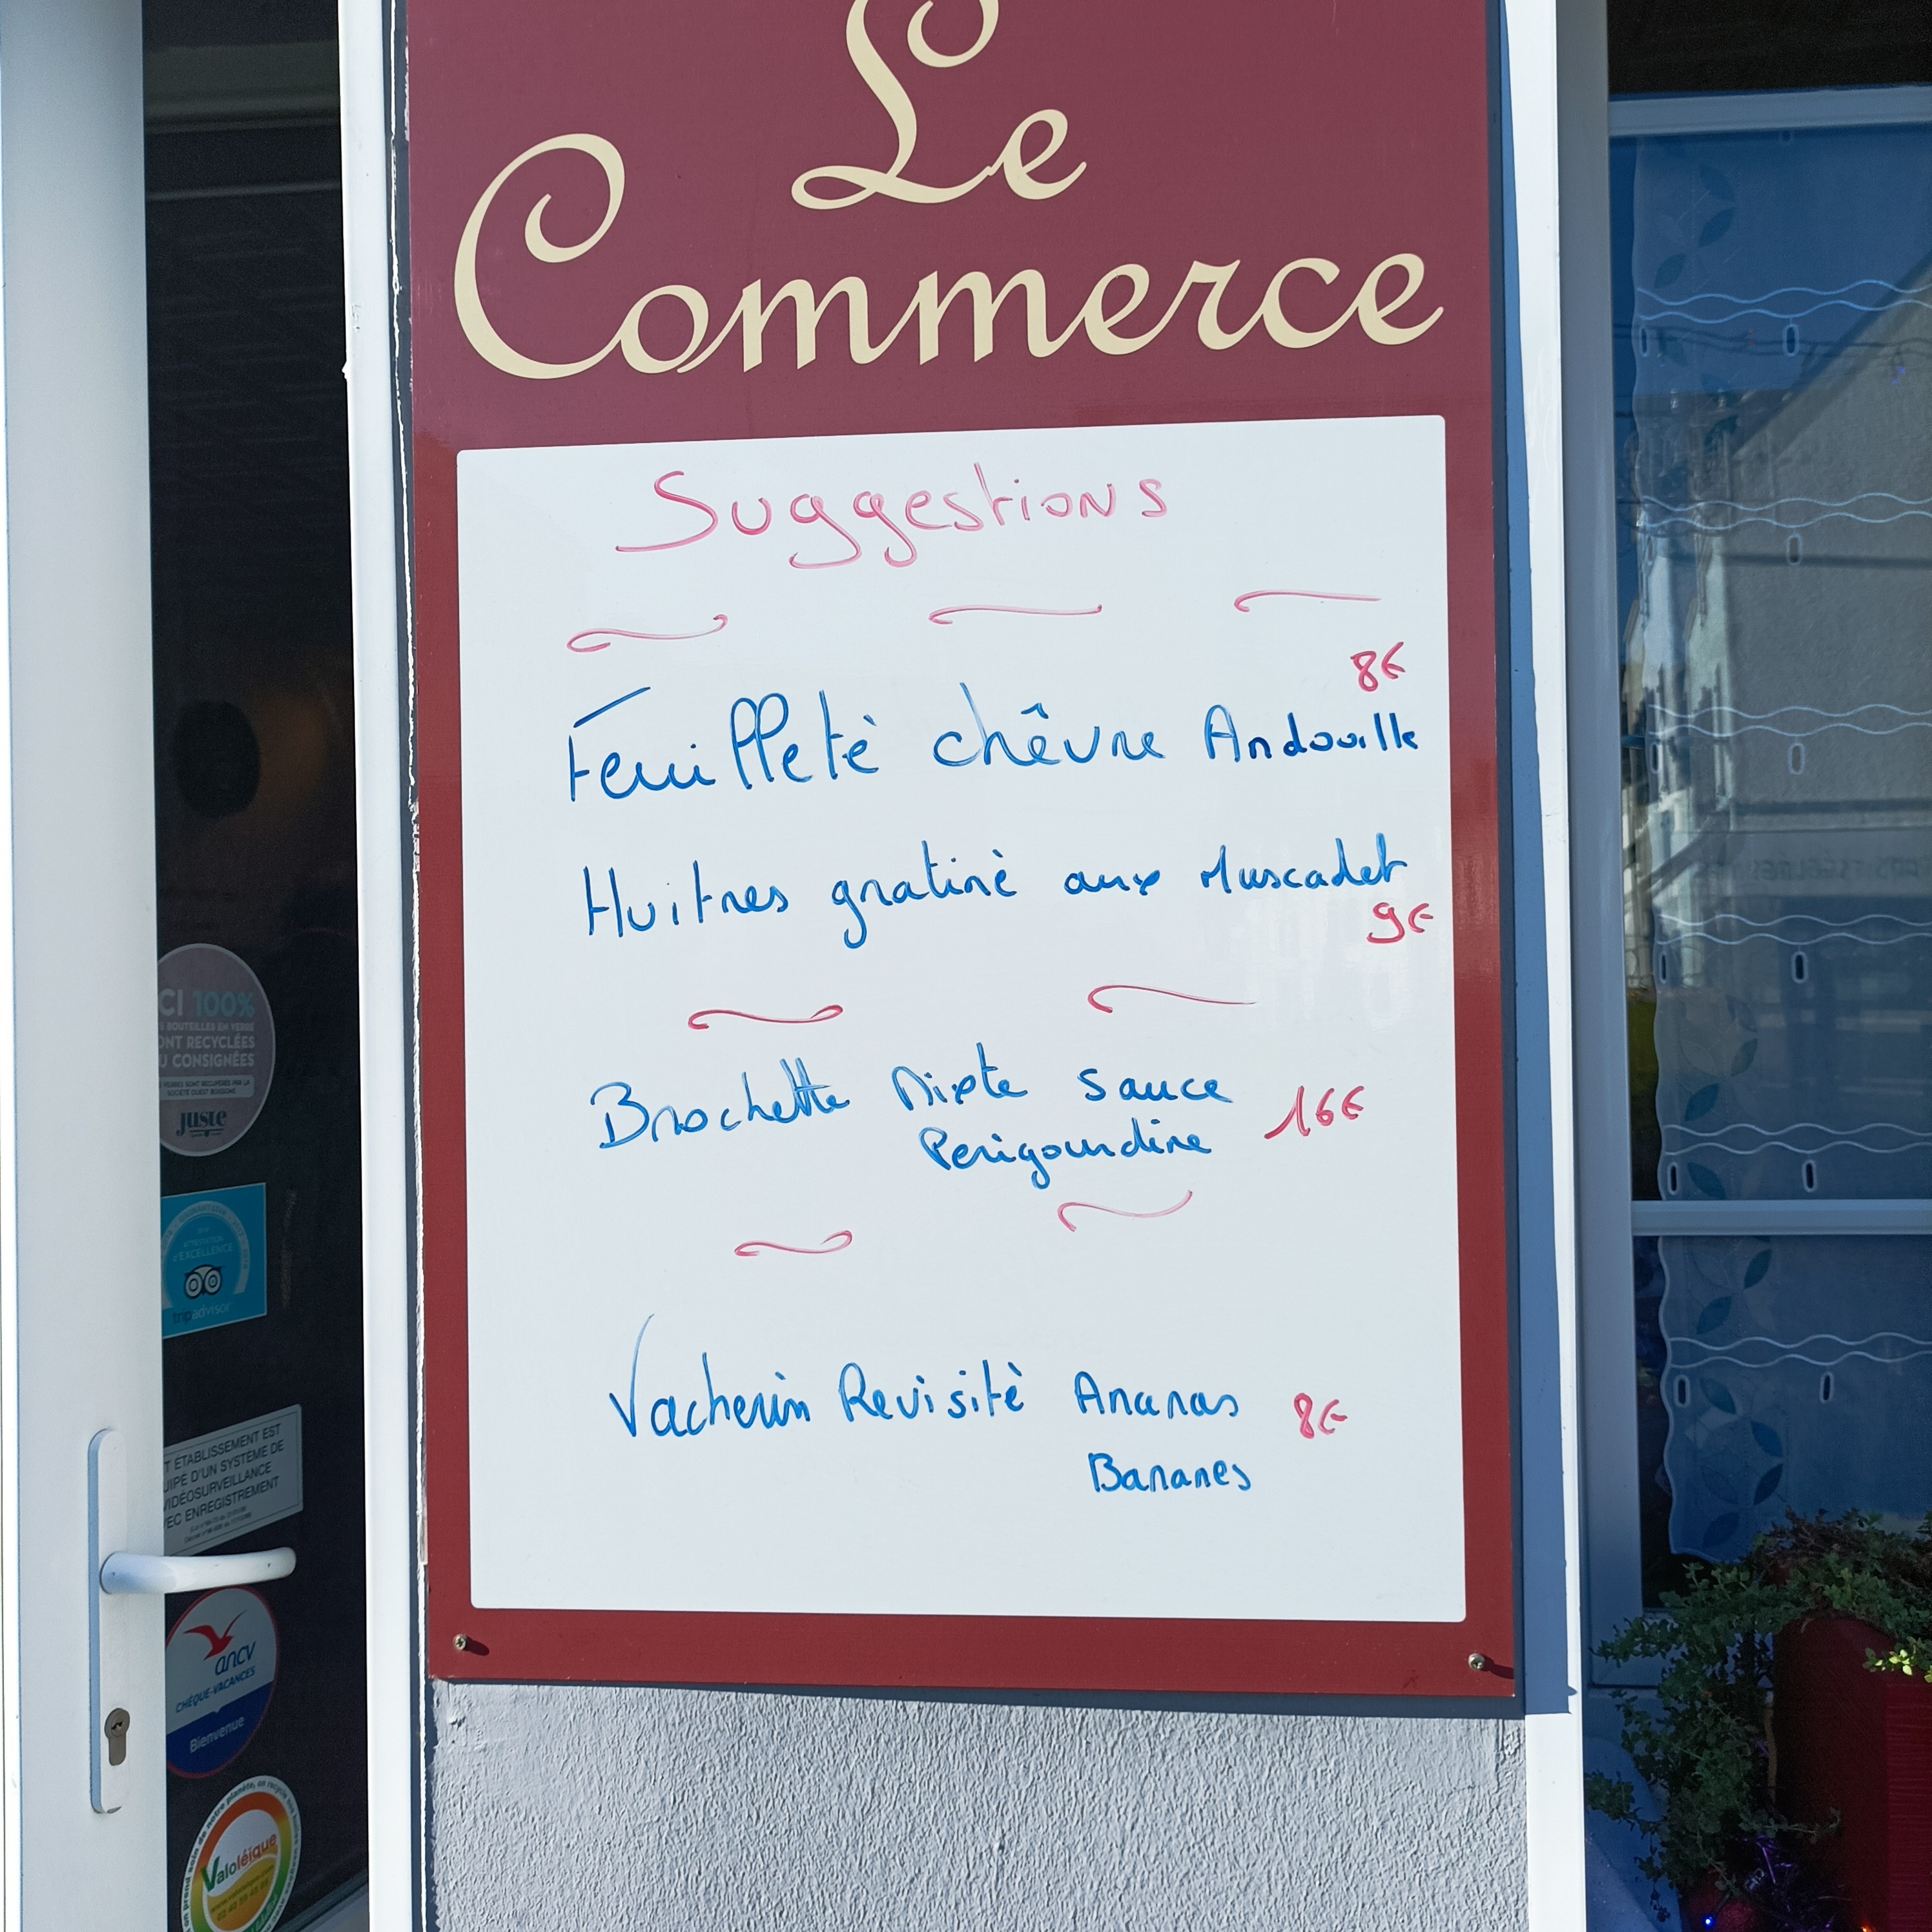 Le
Commerce
Suggestions
8€
Feuilletè chêvre Andouille
Huitres gratinè aux Muscadet
9€
Brochette Mixte sauce
Perigourdine 16€
Vacherin Revisitè Ananas 8€
Bananes
CI 100%
BOUTEILLES EN VERRE
ONT RECYCLÉES
U CONSIGNÉES
juste
ATTESTATION
d'EXCELLENCE
tripadvisor
T ÉTABLISSEMENT EST
UIPÉ D'UN SYSTÈME DE
VIDÉOSURVEILLANCE
EC ENREGISTREMENT
ancv
CHÈQUE-VACANCES
Bienvenue
Valoléique